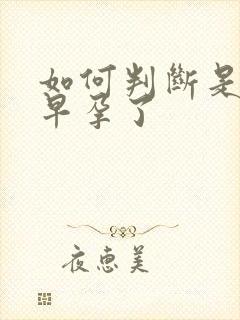 如何判斷是
早孕了
夜惠美